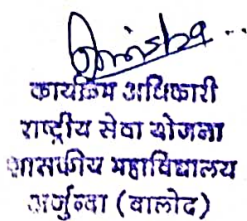 कार्यक्रम अधिकारी
राष्ट्रीय सेवा योजना
शासकीय महाविद्यालय
अर्जुन्दा (बालोद)